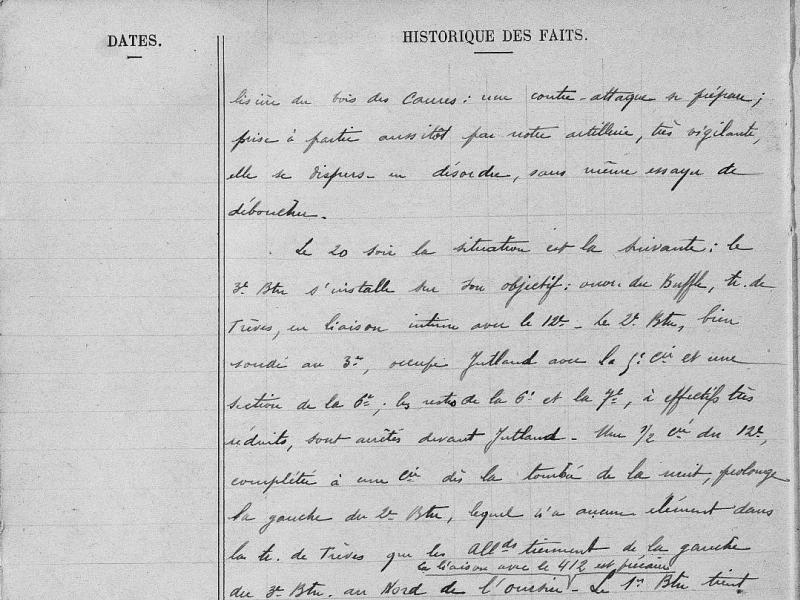 DATES.
HISTORIQUE DES FAITS.
lisière du bois des Caures : une contre-attaque se prépare ;
prise à partie aussitôt par notre artillerie, très vigilante,
elle se disperse en désordre, sans même essayer de
déboucher.
Le 20 soir la situation est la suivante : le
3e Btn s'installe sur son objectif : ouvr. du Buffle, tr. de
Trèves, en liaison intime avec le 12e - Le 2e Btn, bien
soudé au 3e, occupe Jutland avec la 5e Cie et une
section de la 6e ; les restes de la 6e et la 7e, à effectifs très
réduits, sont arrêtés devant Jutland - Une 1/2 Cie du 12e,
complétée à une Cie dès la tombée de la nuit, prolonge
la gauche du 2e Btn, lequel n'a aucun élément dans
la tr. de Trèves que les Allds tiennent de la gauche
la liaison avec le 412 est précaire
du 3e Btn. au Nord de l'oursin - Le 1er Btn tient